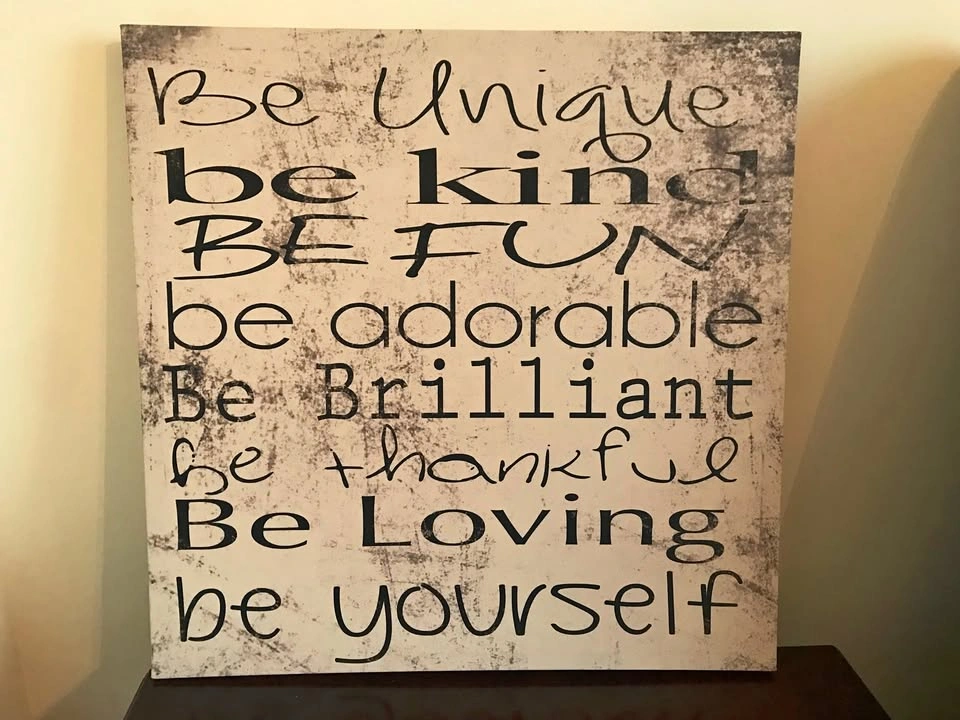 Be Unique
be kind
BE FUN
be adorable
Be Brilliant
Be thankful
Be Loving
be yourself